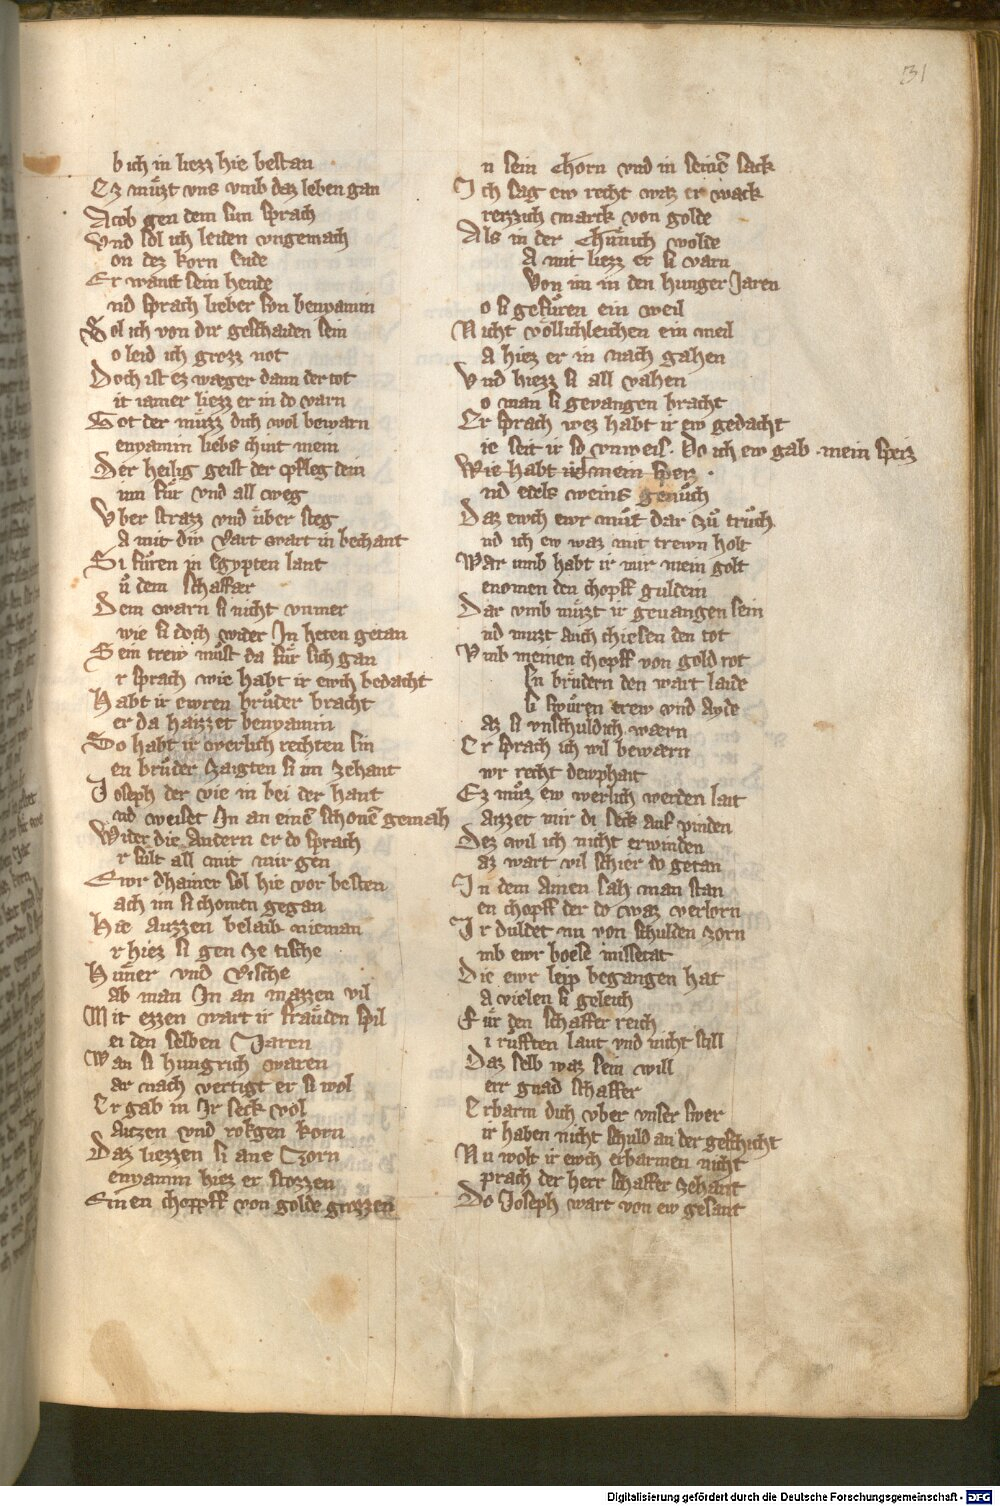 31
b ich in liezz hie bestan
Ez muͤzt vns vmb daz leben gan
Acob gen dem sun sprach
Vnd sol ich leiden vngemach
on dez korn ende
Er want sein hende
nd sprach lieber sun benyamin
Sol ich von dir geschaiden sein
o leid ich grozz not
Doch ist ez wæger dann der tot
it iamer liezz er in do varn
Got der muͤzz dich wol bewarn
enyamin liebs chint mein
Der heilig geist der pfleg dein
im fuͤr vnd all weg
Vber strazz vnd uͤber steg
A mit div vart wart in bechant
Si fuͦren in Egypten lant
uͦ dem schaffær
Dem warn si nicht vnmer
wie si doch wider In heten getan
Sein trew muͦst da fuͤr sich gan
r sprach wie habt ir ewch bedacht
Habt ir ewren bruͦder bracht
er da haizzet benyamin
So habt ir werlich rechten sin
en bruͦder zaigten si im zehant
Ioseph der vie in bei der hant
nd weiset In an eine schone gemach
Wider die Andern er do sprach
r sult all mit mir gen
Ewr dhainer sol hie vor besten
ach im si chomen gegan
Hie auzzen belaib nieman
r hiez si gen ze tische
Huͤner vnd vische
ab man In an mazzen vil
Mit ezzen wart ir frauͤden spil
ei den selben Iaren
Wan si hungrich waren
ar nach vertigt er si wol
Er gab in Ir seck vol
aitzen vnd rokgen korn
Daz liezzen si ane Czorn
enyamin hiez er stozzen
Einen chopff von golde grozzen
n sein Chorn vnd in seine sack
Ich sag ew recht waz er wack
rezzich marck von golde
Als in der Chuͤnich wolde
A mit liezz er si varn
Von im in den hunger Iaren
o si gefuͦren ein weil
Nicht voͤllichleichen ein meil
A hiez er in nach gahen
Vnd hiezz si all vahen
o man si gevangen bracht
Er sprach wez habt ir ew gedacht
ie seit ir so vnweis. Do ich ew gab mein speiz
Wie habt ir mein speiz
nd edels weins genuͦch
Daz ewch ewr muͦt dar zuͦ truͦch
nd ich ew waz mit trewn holt
War vmb habt ir mir mein golt
enomen den chopff guldein
Dar vmb muͤzt ir gevangen sein
nd muzt auch chiesen den tot
Vmb meinen chopff von gold rot
En bruͤdern den wart laide
si swuren trew vnd ayde
az si vnschuldich wærn
Er sprach ich wil bewærn
wr recht dewphait
Ez muͦz ew werlich werden lait
Aizzet mir di seck auf pinden
Dez wil ich nicht erwinden
az wart vil schier do getan
In dem Amen sah man stan
en chopff der do waz verlorn
Ir duldet nu von schulden zorn
mb ewr boese missetat
Die ewr leip begangen hat
A vielen si geleich
Fuͤr den schaffer reich
i rufften laut vnd nicht still
Daz selb waz sein will
err gnad schaffer
Erbarm dich vber vnser swer
ir haben nicht schuld an der geschicht
Nu wolt ir ewch erbarmen nicht
prach der herr schaffer zehant
Do Ioseph wart von ew gesant
Digitalisierung gefördert durch die Deutsche Forschungsgemeinschaft - DFG